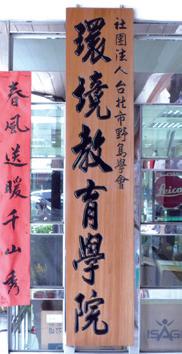 社團法人台北市野鳥學會
環境教育學院
春風送暖千山秀
Leica
ISAG